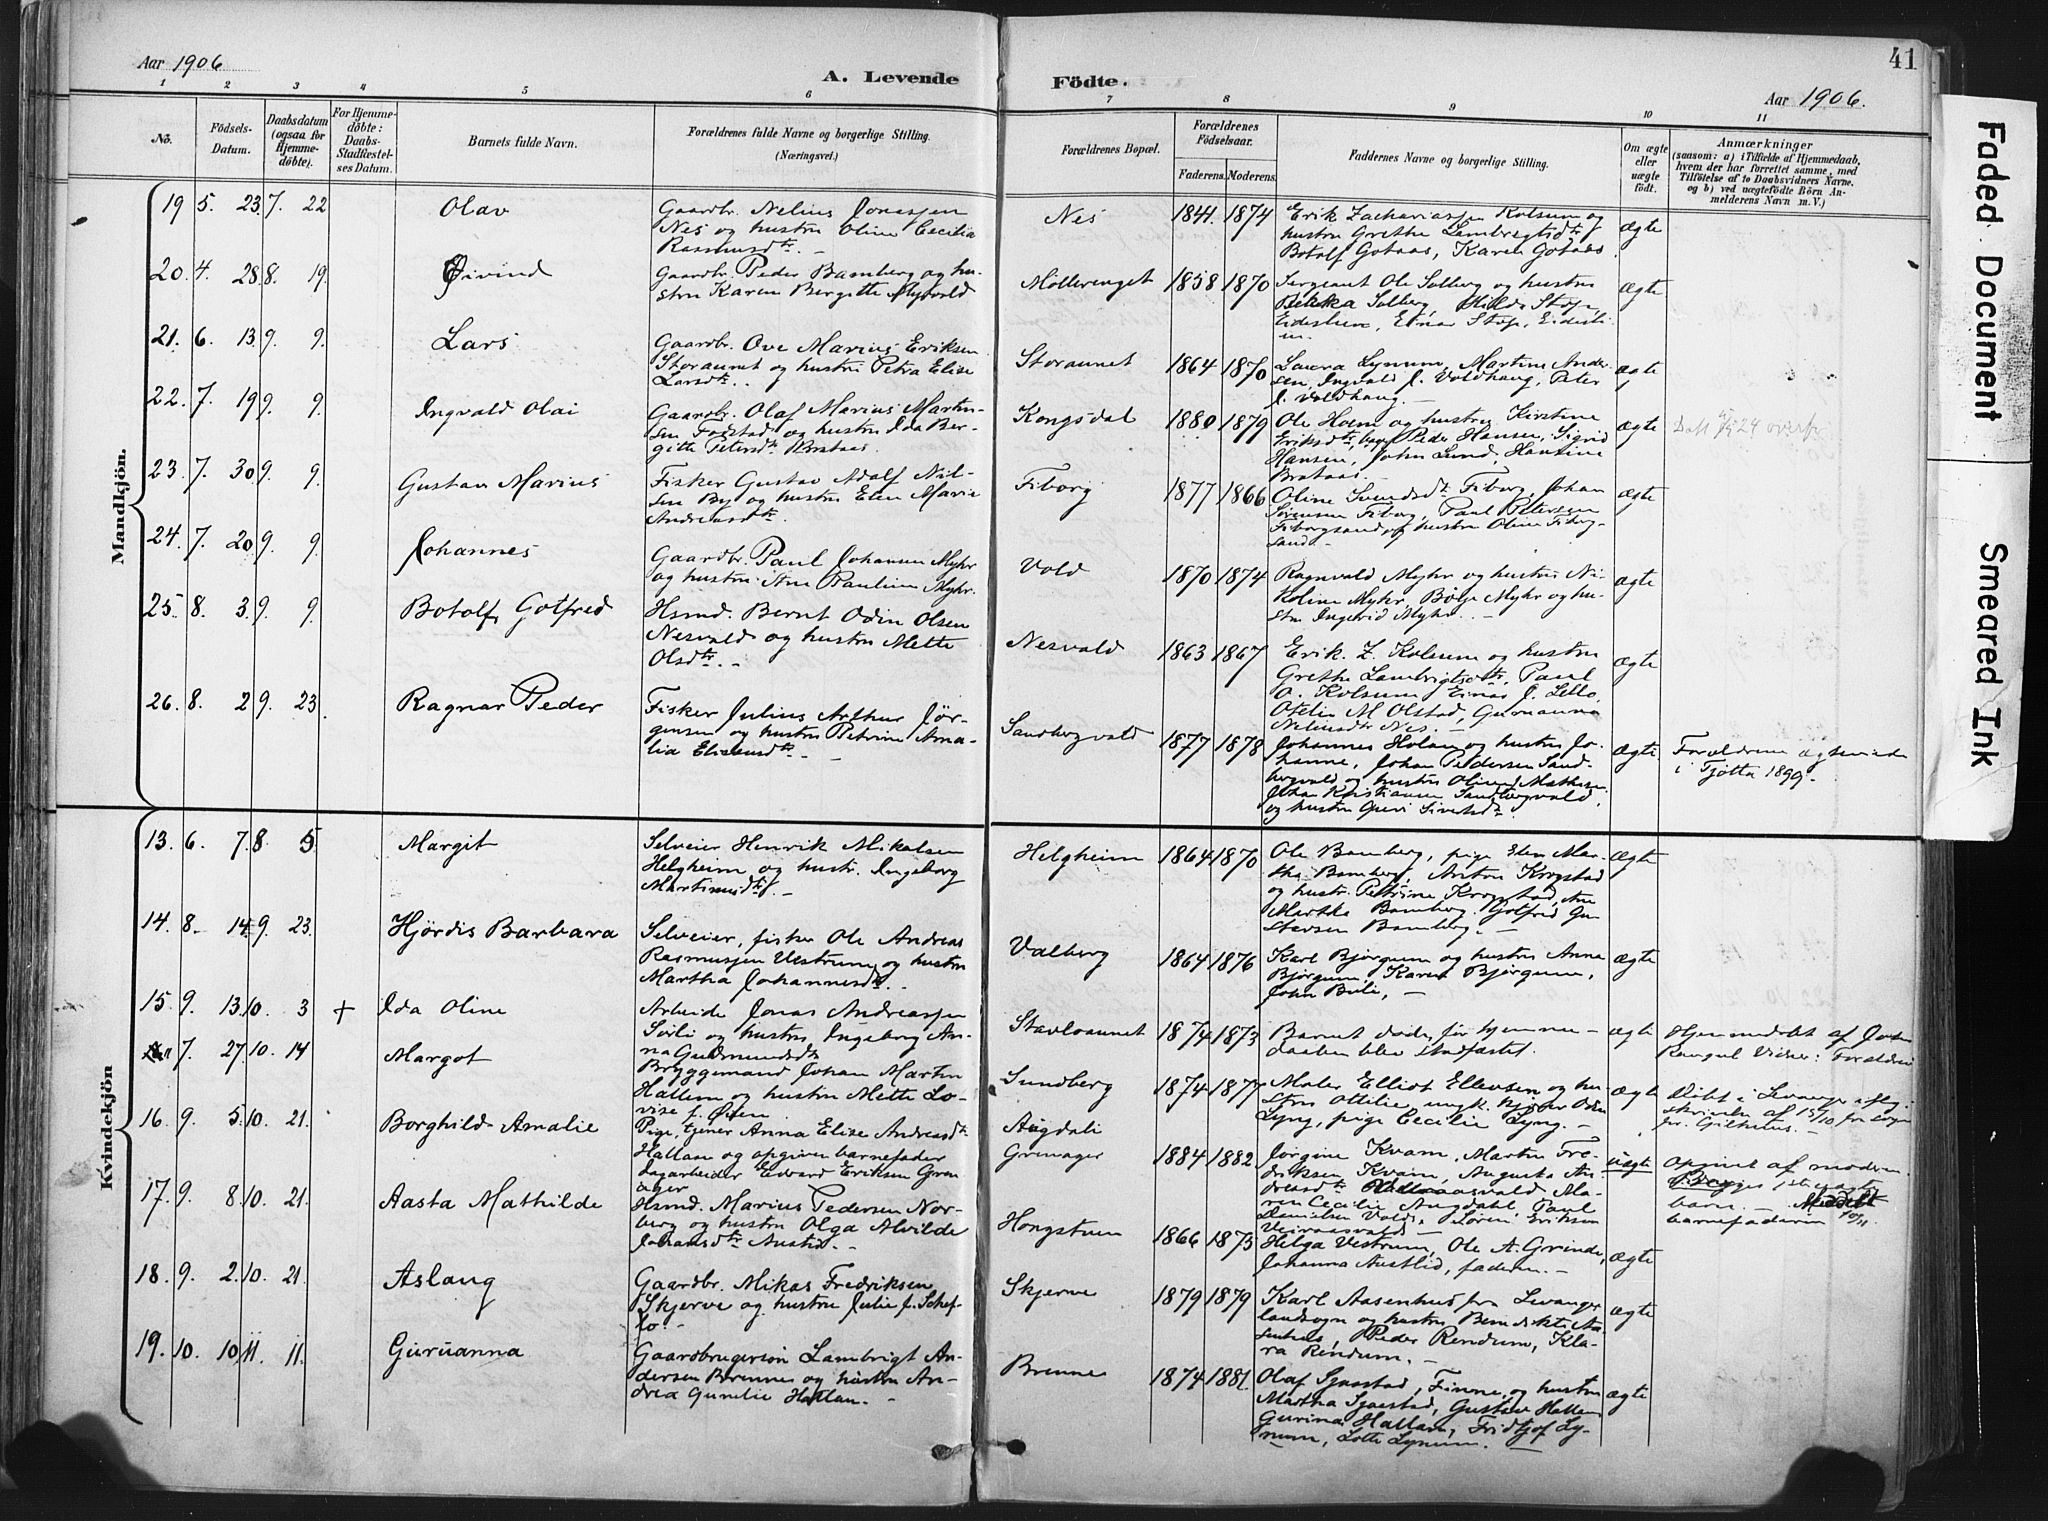 Aar 1906
A. Levende
Födte.
Aar 1906.
41
1 2 3 4 5 6 7 8 9 10 11
No.
Födsels-
Datum.
Daabsdatum
(ogsaa for
Hjemme-
döbte).
For Hjemme-
döbte:
Daabs-
Stadfæstel-
ses Datum.
Barnets fulde Navn.
Forældrenes fulde Navne og borgerlige Stilling.
(Næringsvei.)
Forældrenes Bopæl.
Forældrenes
Födselsaar.
Faderens. Moderens.
Faddernes Navne og borgerlige Stilling.
Om ægte
eller
uægte
födt.
Anmærkninger
(saasom: a) i Tilfælde af Hjemmedaab,
hvem der har forrettet samme, med
Tilföielse af to Daabsvidners Navne,
og b) ved uægtefödte Börn An-
melderens Navn m. V.)
Mandkjön.
19 5. 23. 7. 22
Olav
Gaardbr. Nelius Jonassen
Nes og hustru Oline Cecilia
Rasmusdtr. -
Nes
1844. 1874
Erik Zachariassen Kolsum og
hustru Grethe Lambrigtsdtr
Botolf Gotaas, Karen Gotaas.
ægte
20. 4. 28. 8. 19.
Øivind
Gaardbr. Peder Bamberg og hu-
stru Karen Bergitte Myrvold
Mølleringet
1858 1870
Sergeant Ole Solberg og hustru
Solberg, Hilda Stop,
Einar Stop,
ægte
21. 6. 13. 9. 9.
Lars
Gaardbr. Ove Marius Eriksen
Storaunet og hustru Petra Elise
Larsdtr. .
Storaunet
1864 1870
Laura Lynum, Martin Ander-
sen, Ingvald J. Voldhaug, Peter
J. Voldhaug. -
ægte
22. 7. 19 9. 9.
Ingvald Olai
Gaardbr. Olaf Marius Martin-
sen Fodstad og hustru Ida Ber-
gitte Petersdtr Brataas.
Kongsdal
1880 1879
Ole Holm og hustru Kirstine
Eriksdtr, Peder Hansen, Sigrid
Hansen, John Lund, Hansine
Brataas. -
ægte
23. 7. 30 9. 9.
Gustav Marius
Fisker Gustav Adolf Nil-
sen By og hustru Elen Marie
Andreasdtr.
Fiborg
1877 1866
Oline Svendsdtr Fiborg, Johan
Sørensen Fiborg, Paul Petersen
Fiborgsand og hustru Oline Fiborg-
sand. -
ægte
24. 7. 20. 9. 9.
Johannes
Gaardbr. Paul Johansen Myhr
og hustru Ane Pauline Myhr.
Vold
1870 1874
Ragnvald Myhr og hustru Ni-
koline Myhr, Borje Myhr og hu-
stru Ingerid Myhr. . -
ægte
25. 8. 3. 9. 9.
Botolf Gotfred
Hsmd. Bernt Odin Olsen
Nesvald og hustru Mette
Olsdtr. -
Nesvald
1863 1867
Erik Z. Kolsum og hustru
Grethe Lambrigtsdtr, Paul
O. Kolsum, Einar J. Lello,
Otelie M. Olstad, Guruanna
Neliusdtr Nes. -
ægte
26. 8. 2 9. 23.
Ragnar Peder
Fisker Julius Arthur Jør-
gensen og hustru Petrine Ama-
lia Eliseusdtr. -
Sandbergvald
1877 1878
Johannes Holan og hustru Jo-
hanne, Johan Pedersen Sand-
bergvald og hustru Olivia Mathisen,
Johan Kristiansen Sandbergvald,
og hustru Gurri Sivertsdtr.
ægte.
Forældrene ægteviede
i Tjøtta 1899. -
Kvindekjön
13. 6. 7. 8. 5.
Margit
Selveier Henrik Mikalsen
Helgheim og hustr. Ingeborg
Martinusdtr. -
Helgheim
1864 1870
Ole Bamberg, pige Elen Mar-
tha Bamberg, Anton Krogstad
og hustr. Petrine Krogstad, Ane
Martha Bamberg, Gotfred Gu-
stavsen Bamberg. -
ægte
14. 8. 14. 9. 23.
Hjördis Barbara
Selveier, fisker Ole Andreas
Rasmussen Vestrum og hustru
Martha Johannesdtr. -
Valberg
1864 1876
Karl Bjørgum og hustru Anna
Bjørgum, Karen Bjørgum,
John Buli, -
ægte
15. 9. 13. 10. 3 +
Ida Oline
Arbeide Jonas Andreassen
Svili og hustru Ingeborg An-
na Gudmundsdtr
Stavloaunet
1874 1873
Barnet døde, før hjemme-
daaben blev stadfæstet.
ægte
Hjemmedøbt af
Vidner: Forældrene
7. 27. 10. 14
Margot
Bryggemand Johan Martin
Hallem og hustru Mette Lo-
vise f. Øien.
Sundberg
1874 1877
Maler Elliot Ellevsen og hu-
stru Ottilie, ungk. Odin
Lyng, pige Cecilie Lyng. -
ægte
Døbt i Levanger iflg.
skrivelse af 15/10 fra
16. 9. 5. 10. 21.
Borghild Amalie
Pige, tjener Anna Elise Andreasdtr
Hallan og opgiven barnefader
Dagarbeider Edvard Eriksen Gren-
ager
Augdali
Grenager
1884 1882
Jørgine Kvam, Martin Fre-
driksen Kvam, Augusta An-
dreasdtr, Ma-
ren Cecilie Augdahl, Paul
Danielsen Vald, Søren Eriksen
ægte
uægte
Opgivet af moderen.
Begges 1ste uægte
barn. - Meddelt
barnefaderen 10/11.
17. 9. 8. 10. 21.
Aasta Mathilde
Hsmd. Marius Pedersen Nor-
berg og hustru Olga Alvilde
Johansdtr Austlid. -
Hongstuen
1866 1873
Helga Vestrum, Ole A. Grinde,
Johanna Austlid, faderen. -
ægte
18. 9. 2. 10. 21.
Aslaug
Gaardbr. Mikas Fredriksen
Skjerve og hustru Julie f. Schef-
lo. -
Skjerve
1879 1879
Karl Aasenhus fra Levanger
landsogn og hustru Benedikte Aa-
senhus, Peder Rendum, Kla-
ra Rendum. -
ægte
19. 10. 10. 11. 11.
Guruanna
Gaardbrugersøn Lambrigt An-
dersen Brenne og hustru An-
drea Gurelie Hallan. -
Brenne
1874 1881.
Olaf Sjaastad, Finne, og hustru
Martha Sjaastad, Gustav Hallan,
Gurina Hallan, Fridtjof Ly-
num, Lotte Lynum. -
ægte
Faded Document
Smeared Ink